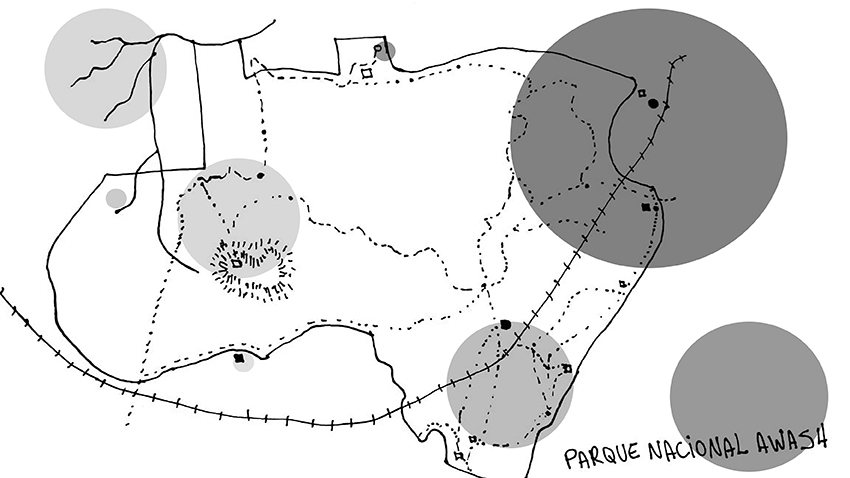 PARQUE NACIONAL AWASH